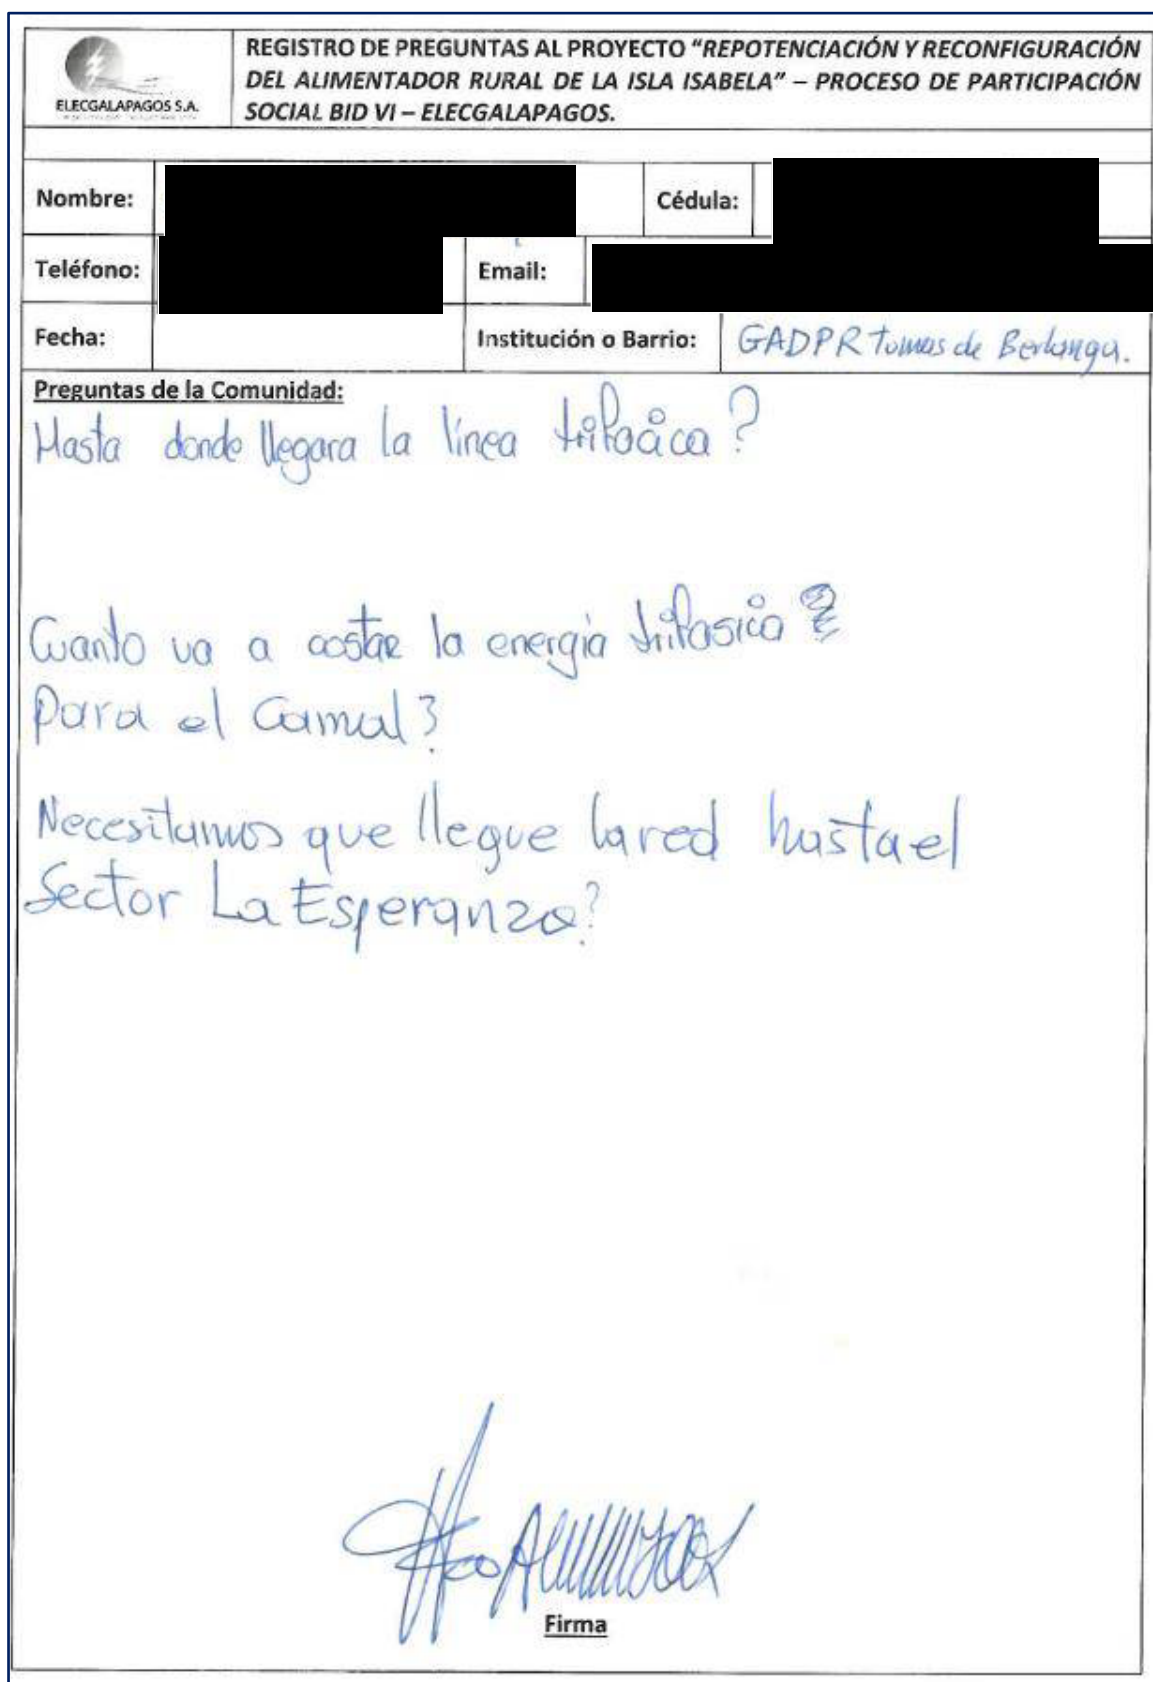 ELECGALAPAGOS S.A.
REGISTRO DE PREGUNTAS AL PROYECTO "REPOTENCIACIÓN Y RECONFIGURACIÓN
DEL ALIMENTADOR RURAL DE LA ISLA ISABELA" – PROCESO DE PARTICIPACIÓN
SOCIAL BID VI – ELECGALAPAGOS.
Nombre: Cédula:
Teléfono: Email:
Fecha: Institución o Barrio: GADPR Tomas de Berlanga.
Preguntas de la Comunidad:
Hasta donde llegara la línea trifásica?
Cuanto va a costar la energía trifasica
Para el Camal?
Necesitamos que llegue la red hasta el
Sector La Esperanza?
Firma